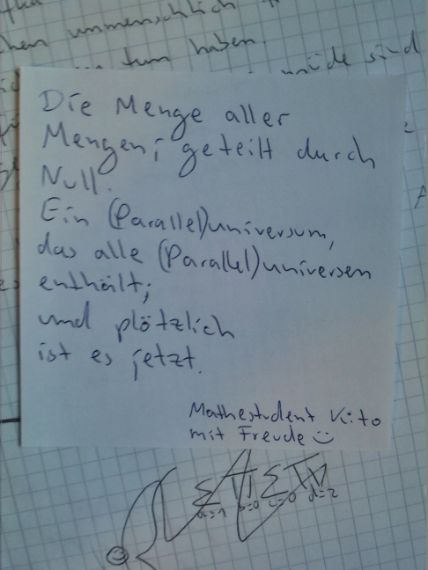 chen unmenschlich
tun haben.
müde sind
Die Menge aller
Mengen; geteilt durch
Null.
Ein (Parallel)universum,
das alle (Parallel)universen
enthält;
und plötzlich
ist es jetzt.
Mathestudent Kito
mit Freude ☺